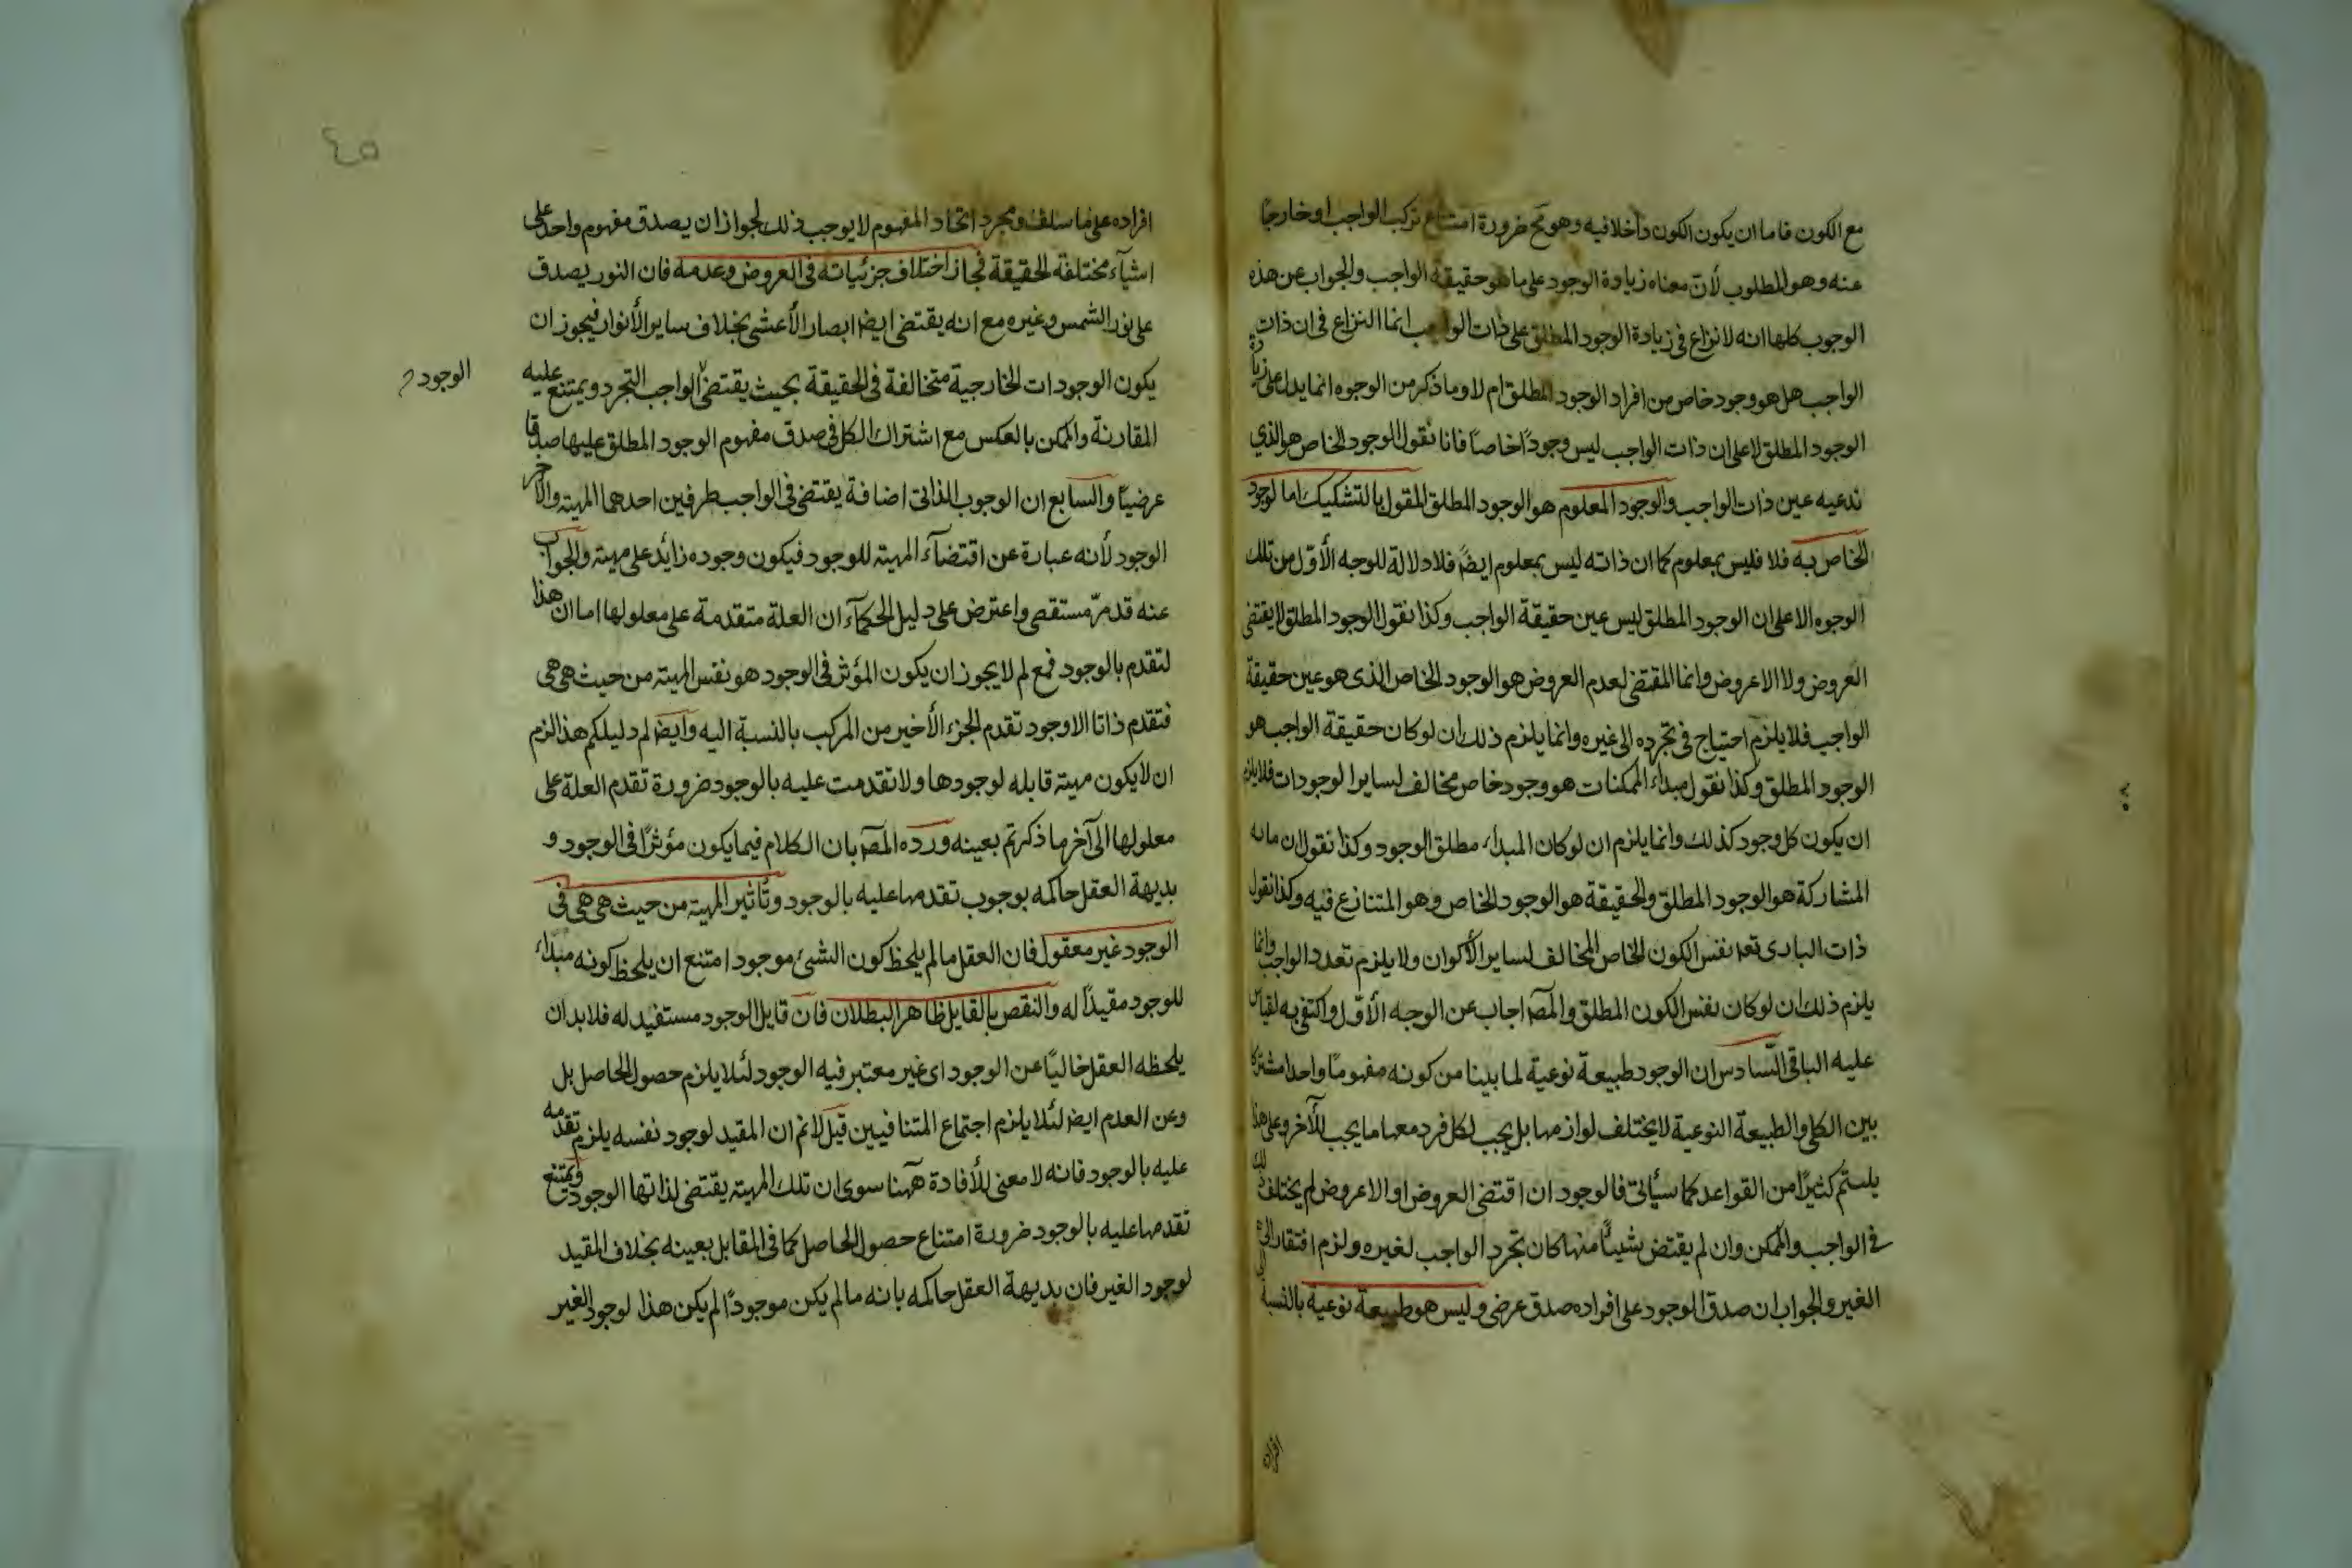 مع الكون فاما ان يكون الكون داخلا فيه وهو مح ضرورة امتناع تركب الواجب او خارجًا
عنه وهو المطلوب لأنّ معناه زيادة الوجود على ما هو حقيقة الواجب والجواب عن هذه
الوجوب كلها انه لا نزاع فى زيادة الوجود المطلق على ذات الواجب انما النزاع فى ان ذات
الواجب هل هو وجود خاص من افراد الوجود المطلق ام لا وما ذكر من الوجوه انما يدل على زيادة
الوجود المطلق لا على ان ذات الواجب ليس وجودًا خاصًا فانا نقول الوجود الخاص هو الذي
ندعيه عين ذات الواجب والوجود المعلوم هو الوجود المطلق المقول بالتشكيك اما لوجود
الخاص به فلا فليس بمعلوم كما ان ذاته ليس بمعلوم ايضً فلا دلالة للوجه الأوّل من تلك
الوجوه الا على ان الوجود المطلق ليس عين حقيقة الواجب وكذا نقول الوجود المطلق لا يقتضى
العروض ولا الاعروض وانما المقتضى لعدم العروض هو الوجود الخاص الذى هو عين حقيقة
الواجب فلا يلزم احتياج فى تجرده الى غيره وانما يلزم ذلك ان لو كان حقيقة الواجب هو
الوجود المطلق وكذا نقول مبداء الممكنات هو وجود خاص مخالف لساير الوجودات فلا يلزم
ان يكون كل وجود كذلك وانما يلزم ان لو كان المبداء مطلق الوجود وكذا نقول ان ما به
المشاركة هو الوجود المطلق والحقيقة هو الوجود الخاص وهو المتنازع فيه وكذا نقول
ذات البارى تعا نفس الكون الخاص المخالف لساير الأكوان ولا يلزم تعدد الواجب وانما
يلزم ذلك ان لو كان نفس الكون المطلق والمصـ اجاب عن الوجه الأوّل واكتفى به لقياس
عليه الباقى السّادس ان الوجود طبيعة نوعية لما بينا من كونه مفهومًا واحدا مشتركا
بين الكل والطبيعة النوعية لا يختلف لوازمها بل يجب لكل فرد معها ما يجب للآخر وعلى هذا
يلستم كثيرًا من القواعد كما سيأتى فالوجود ان اقتضى العروض او الاعروض لم يختلف ذلك
فى الواجب والممكن وان لم يقتض شيئًا منها كان تجرد الواجب لغيره ولزم افتقار الى
الغير والجواب ان صدق الوجود على افراده صدق عرضى وليس هو طبيعة نوعية بالنسبة
افراده
٤٥
افراده على ما سلف ومجرد اتحاد المفهوم لا يوجب ذلك لجواز ان يصدق مفهوم واحد على
اشيآء مختلفة الحقيقة فجاز اختلاف جزئياته فى العروض وعدمه فان النور يصدق
على نور الشمس وغيره مع انه يقتضى ايضا ابصار الأعشى بخلاف ساير الأنوار فيجوز ان
يكون الوجودات الخارجية متخالفة فى الحقيقة بحيث يقتضى الواجب التجرد ويمتنع عليه
الوجود
المقارنة والممكن بالعكس مع اشتراك الكل فى صدق مفهوم الوجود المطلق عليها صدقا
عرضيًا والسابع ان الوجوب الذاتى اضافة يقتضى فى الواجب طرفين احدهما المهية والآخر
الوجود لأنه عبارة عن اقتضآء المهية للوجود فيكون وجوده زائد على مهية والجواب
عنه قد مرّ مستقصى واعترض على دليل الحكمآء ان العلة متقدمة على معلولها اما ان هذا
لتقدم بالوجود فمع لم لا يجوز ان يكون المؤثر فى الوجود هو نفس المهية من حيث هى هى
فتقدم ذاتا الا وجود تقدم الجزء الأخير من المركب بالنسبة اليه وايضا لم دليلكم هذا لزم
ان لا يكون مهية قابله لوجودها ولا تقدمت عليه بالوجود ضرورة تقدم العلة على
معلولها الى آخر ما ذكرتم بعينه ورده المصـ بان الكلام فيما يكون مؤثرًا فى الوجود و
بديهة العقل حاكمه بوجوب تقدمها عليه بالوجود وتأثير المهية من حيث هى هى فى
الوجود غير معقول فان العقل ما لم يلحظ كون الشىء موجود امتنع ان يلحظ كونه مبداء
للوجود مقيدًا له والنقص بالقايل ظاهر البطلان فان قايل الوجود مستفيد له فلا بد ان
يلحظه العقل خاليًا عن الوجود اى غير معتبر فيه الوجود لئلا يلزم حصول الحاصل بل
وعن العدم ايضا لئلا يلزم اجتماع المتنافيين قيل لا نم ان المقيد لوجود نفسه يلزم تقدمه
عليه بالوجود فانه لا معنى للأفادة ههنا سوى ان تلك المهية يقتضى لذاتها الوجود ويمتنع
تقدمها عليه بالوجود ضرورة امتناع حصول الحاصل كما فى المقابل بعينه بخلاف المقيد
لوجود الغير فان بديهة العقل حاكمه بانه ما لم يكن موجودًا لم يكن هذا لوجود الغير